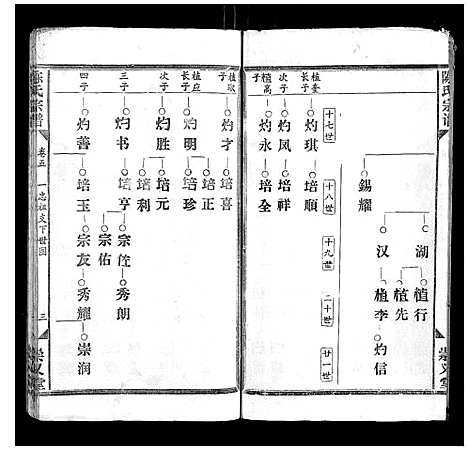 陈氏宗谱
錫耀
湖
植行
植先
汉
植李
灼信
崇义堂
十七世
十八世
十九世
二十世
廿一世
植奎
长子
灼琪
培順
次子
灼凤
培祥
植高
子
灼永
培全
植取
子
灼才
培喜
植应
长子
灼明
培正
培珍
次子
灼胜
培元
培利
三子
灼书
培亨
宗侄
秀朗
宗佑
四子
灼善
培玉
宗友
秀耀
崇润
陈氏宗谱
卷五
一忠祖支下世图
三
崇义堂